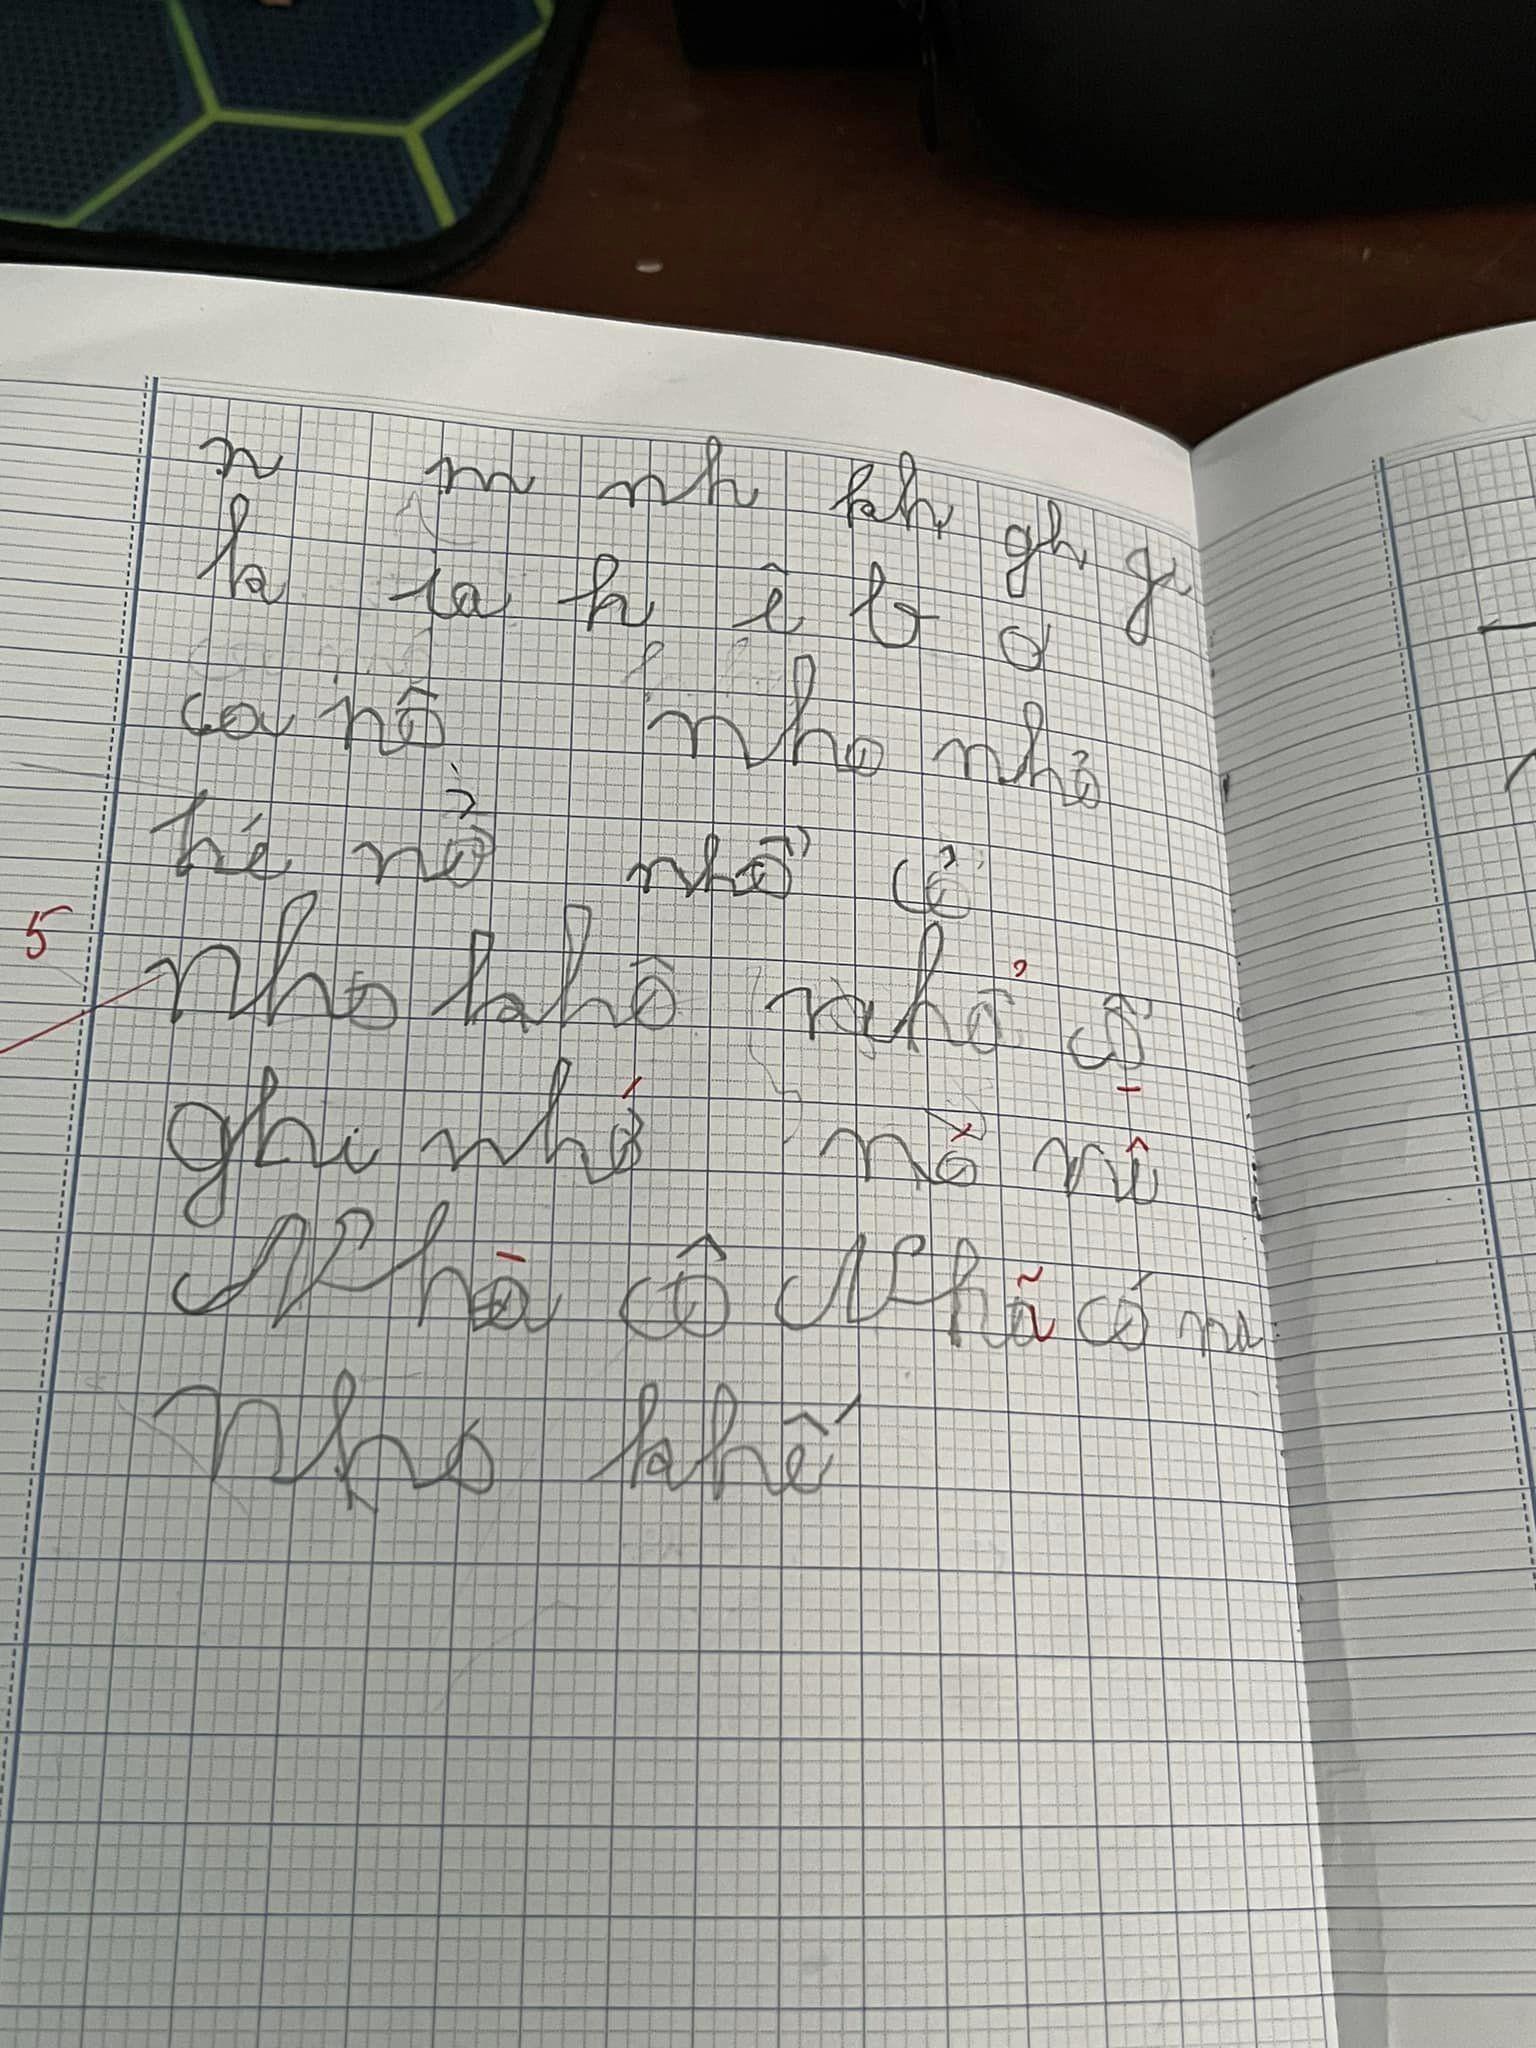 n m nh kh gh gi
k ia h ê b ơ
ca nô nho nhỏ
hé nở nhổ cỏ
5
nho khô nhổ cỏ
ghi nhớ mỏ nê
Nhà cô Nhã có na
Nho khế